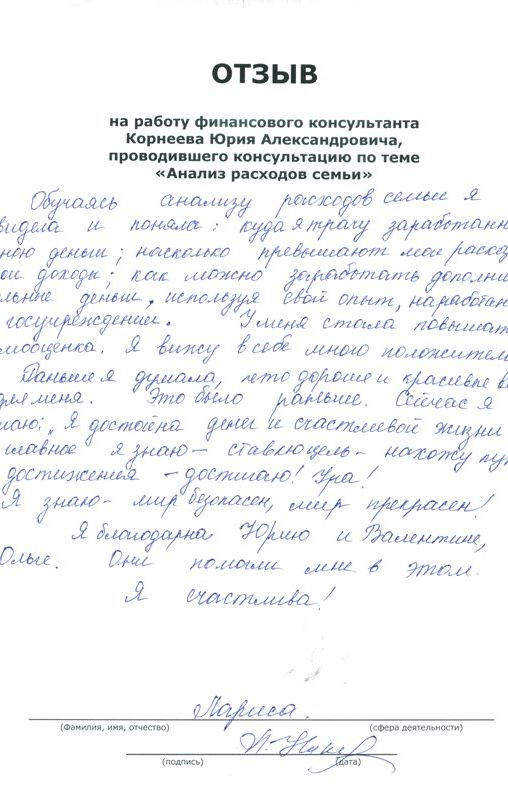 ОТЗЫВ
на работу финансового консультанта
Корнеева Юрия Александровича,
проводившего консультацию по теме
«Анализ расходов семьи»
Обучаясь анализу расходов семьи я
видела и поняла: куда я трачу заработан
ною деньги; насколько превышают мои расхо
ои доходы; как можно заработать дополни
ельные деньги, используя свой опыт, наработан
госучреждении. У меня стала повышат
мооценка. Я вижу в себе много положител
Раньше я думала, что дорогие и красивые в
для меня. Это было раньше. Сейчас я
наю: Я достойна денег и счастливой жизни
главное я знаю - ставлю цель - нахожу пу
достижения - достигаю! Ура!
Я знаю - мир безопасен, мир прекрасен!
Я благодарна Юрию и Валентине,
Ольге. Они помогли мне в этом.
Я счастлива!
Лариса.
(Фамилия, имя, отчество) (сфера деятельности)
(подпись) (дата)